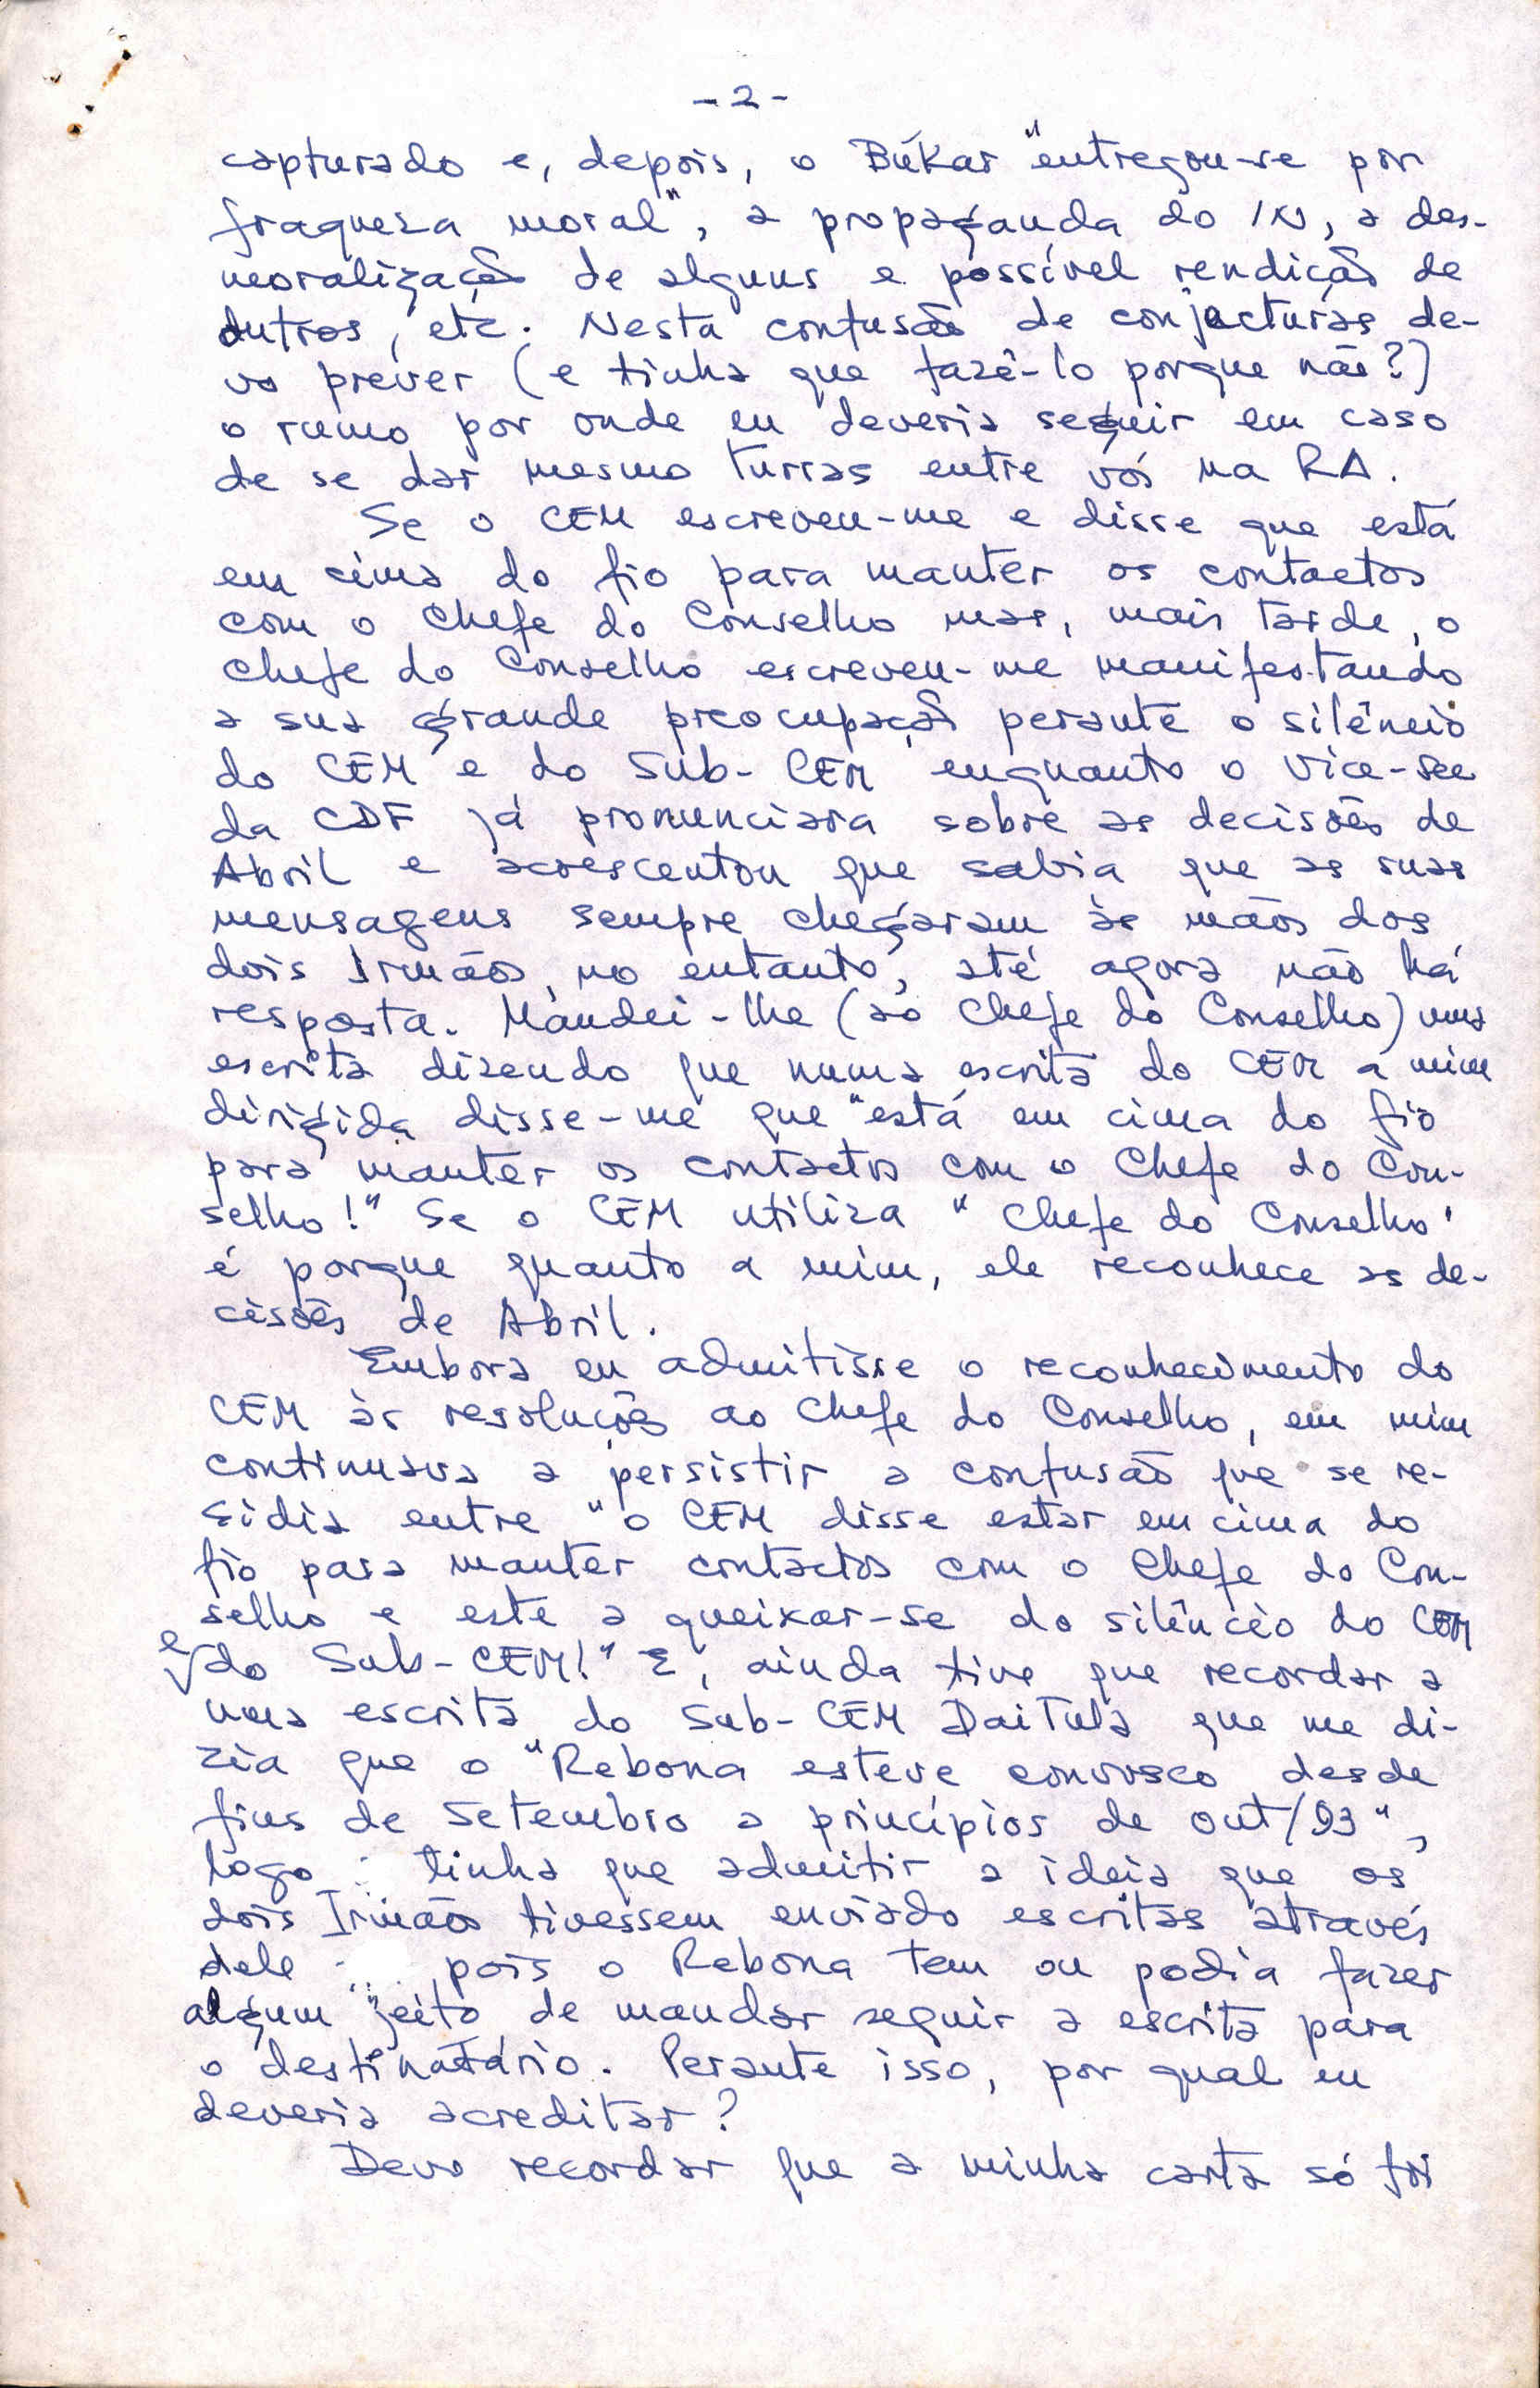 - 2 -
capturado e, depois, o Búkar "entregou-se por
fraqueza moral", a propaganda do IN, a des-
moralização de alguns e possível rendição de
outros, etc. Nesta confusão de conjecturas de-
vo prever (e tinha que fazê-lo porque não?)
o rumo por onde eu deveria seguir em caso
de se dar mesmo turras entre vós na RA.
Se o CEM escreveu-me e disse que está
em cima do fio para manter os contactos
com o Chefe do Conselho mas, mais tarde, o
Chefe do Conselho escreveu-me manifestando
a sua grande preocupação perante o silêncio
do CEM e do Sub-CEM enquanto o Vice-Sec
da CDF já pronunciara sobre as decisões de
Abril e acrescentou que sabia que as suas
mensagens sempre chegaram às mãos dos
dois Irmãos, no entanto, até agora não há
resposta. Mandei-lhe (ao Chefe do Conselho) uma
escrita dizendo que numa escrita do CEM a mim
dirigida disse-me que "está em cima do fio
para manter os contactos com o Chefe do Con-
selho!" Se o CEM utiliza "Chefe do Conselho"
é porque quanto a mim, ele reconhece as de-
cisões de Abril.
Embora eu admitisse o reconhecimento do
CEM às resoluções ao Chefe do Conselho, em mim
continuava a persistir a confusão que se re-
sidia entre "o CEM disse estar em cima do
fio para manter contactos com o Chefe do Con-
selho e este a queixar-se do silêncio do CEM
e do Sub-CEM!" E, ainda tive que recordar a
uma escrita do Sub-CEM Daitula que me di-
zia que o "Rebona esteve convosco desde
fins de Setembro a princípios de Out/93",
logo tinha que admitir a ideia que os
dois Irmãos tivessem enviado escritas através
dele pois o Rebona tem ou podia fazer
algum "jeito de mandar seguir a escrita para
o destinatário. Perante isso, por qual eu
deveria acreditar?
Devo recordar que a minha carta só foi